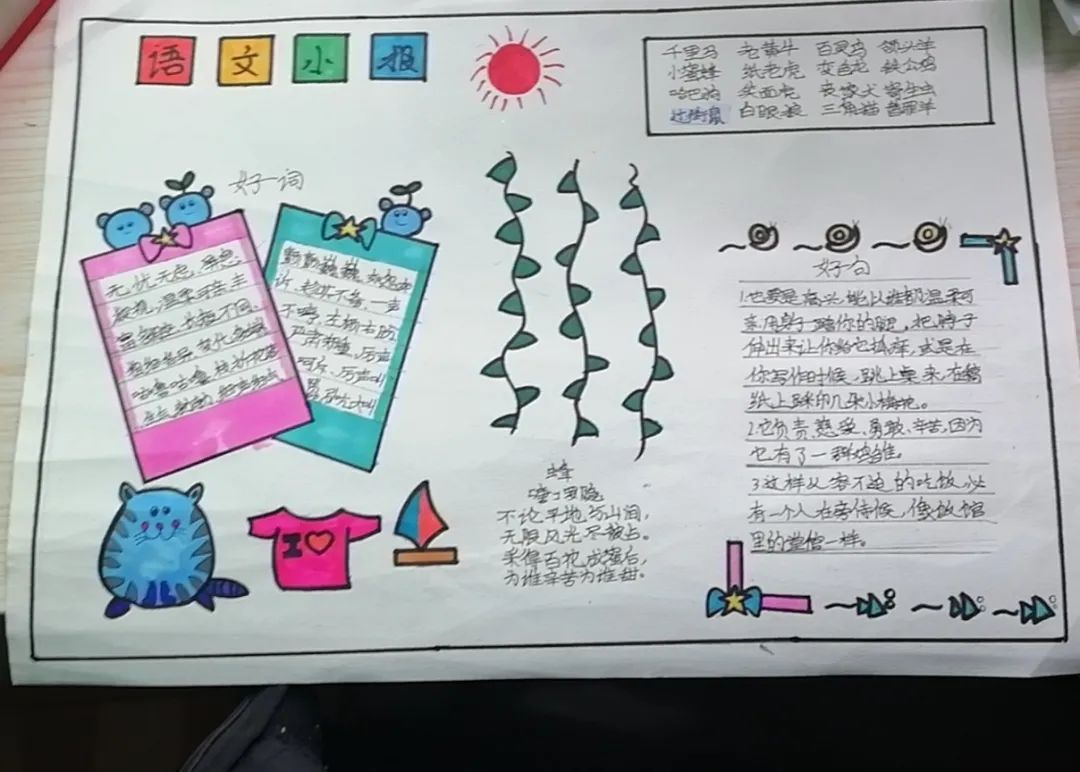 语文小报
千里马 老黄牛 百灵鸟 领头羊
小蜜蜂 纸老虎 变色龙 铁公鸡
哈巴狗 笑面虎 丧家犬 寄生虫
过街鼠 白眼狼 三角猫 替罪羊
好词
无忧无虑
温柔可亲 丰
富 不同
变化
枝折花落
生气勃勃
鬼鬼祟祟
一声
不鸣
厉声
呵斥 厉声叫
大叫
蜂
唐:罗隐
不论平地与山涧,
无限风光尽被占。
采得百花成蜜后,
为谁辛苦为谁甜。
好句
1.它要是高兴,能比谁都温柔可
亲用身子蹭你的腿,把脖子
伸出来让你给它抓痒,或是在
你写作时候,跳上桌来,在稿
纸上踩印几朵小梅花。
2.它负责、慈爱、勇敢、辛苦,因为
它有了一群鸡雏。
3.这样从容不迫的吃饭,必
有一个人在旁侍候,像饭馆
里的堂倌一样。
I